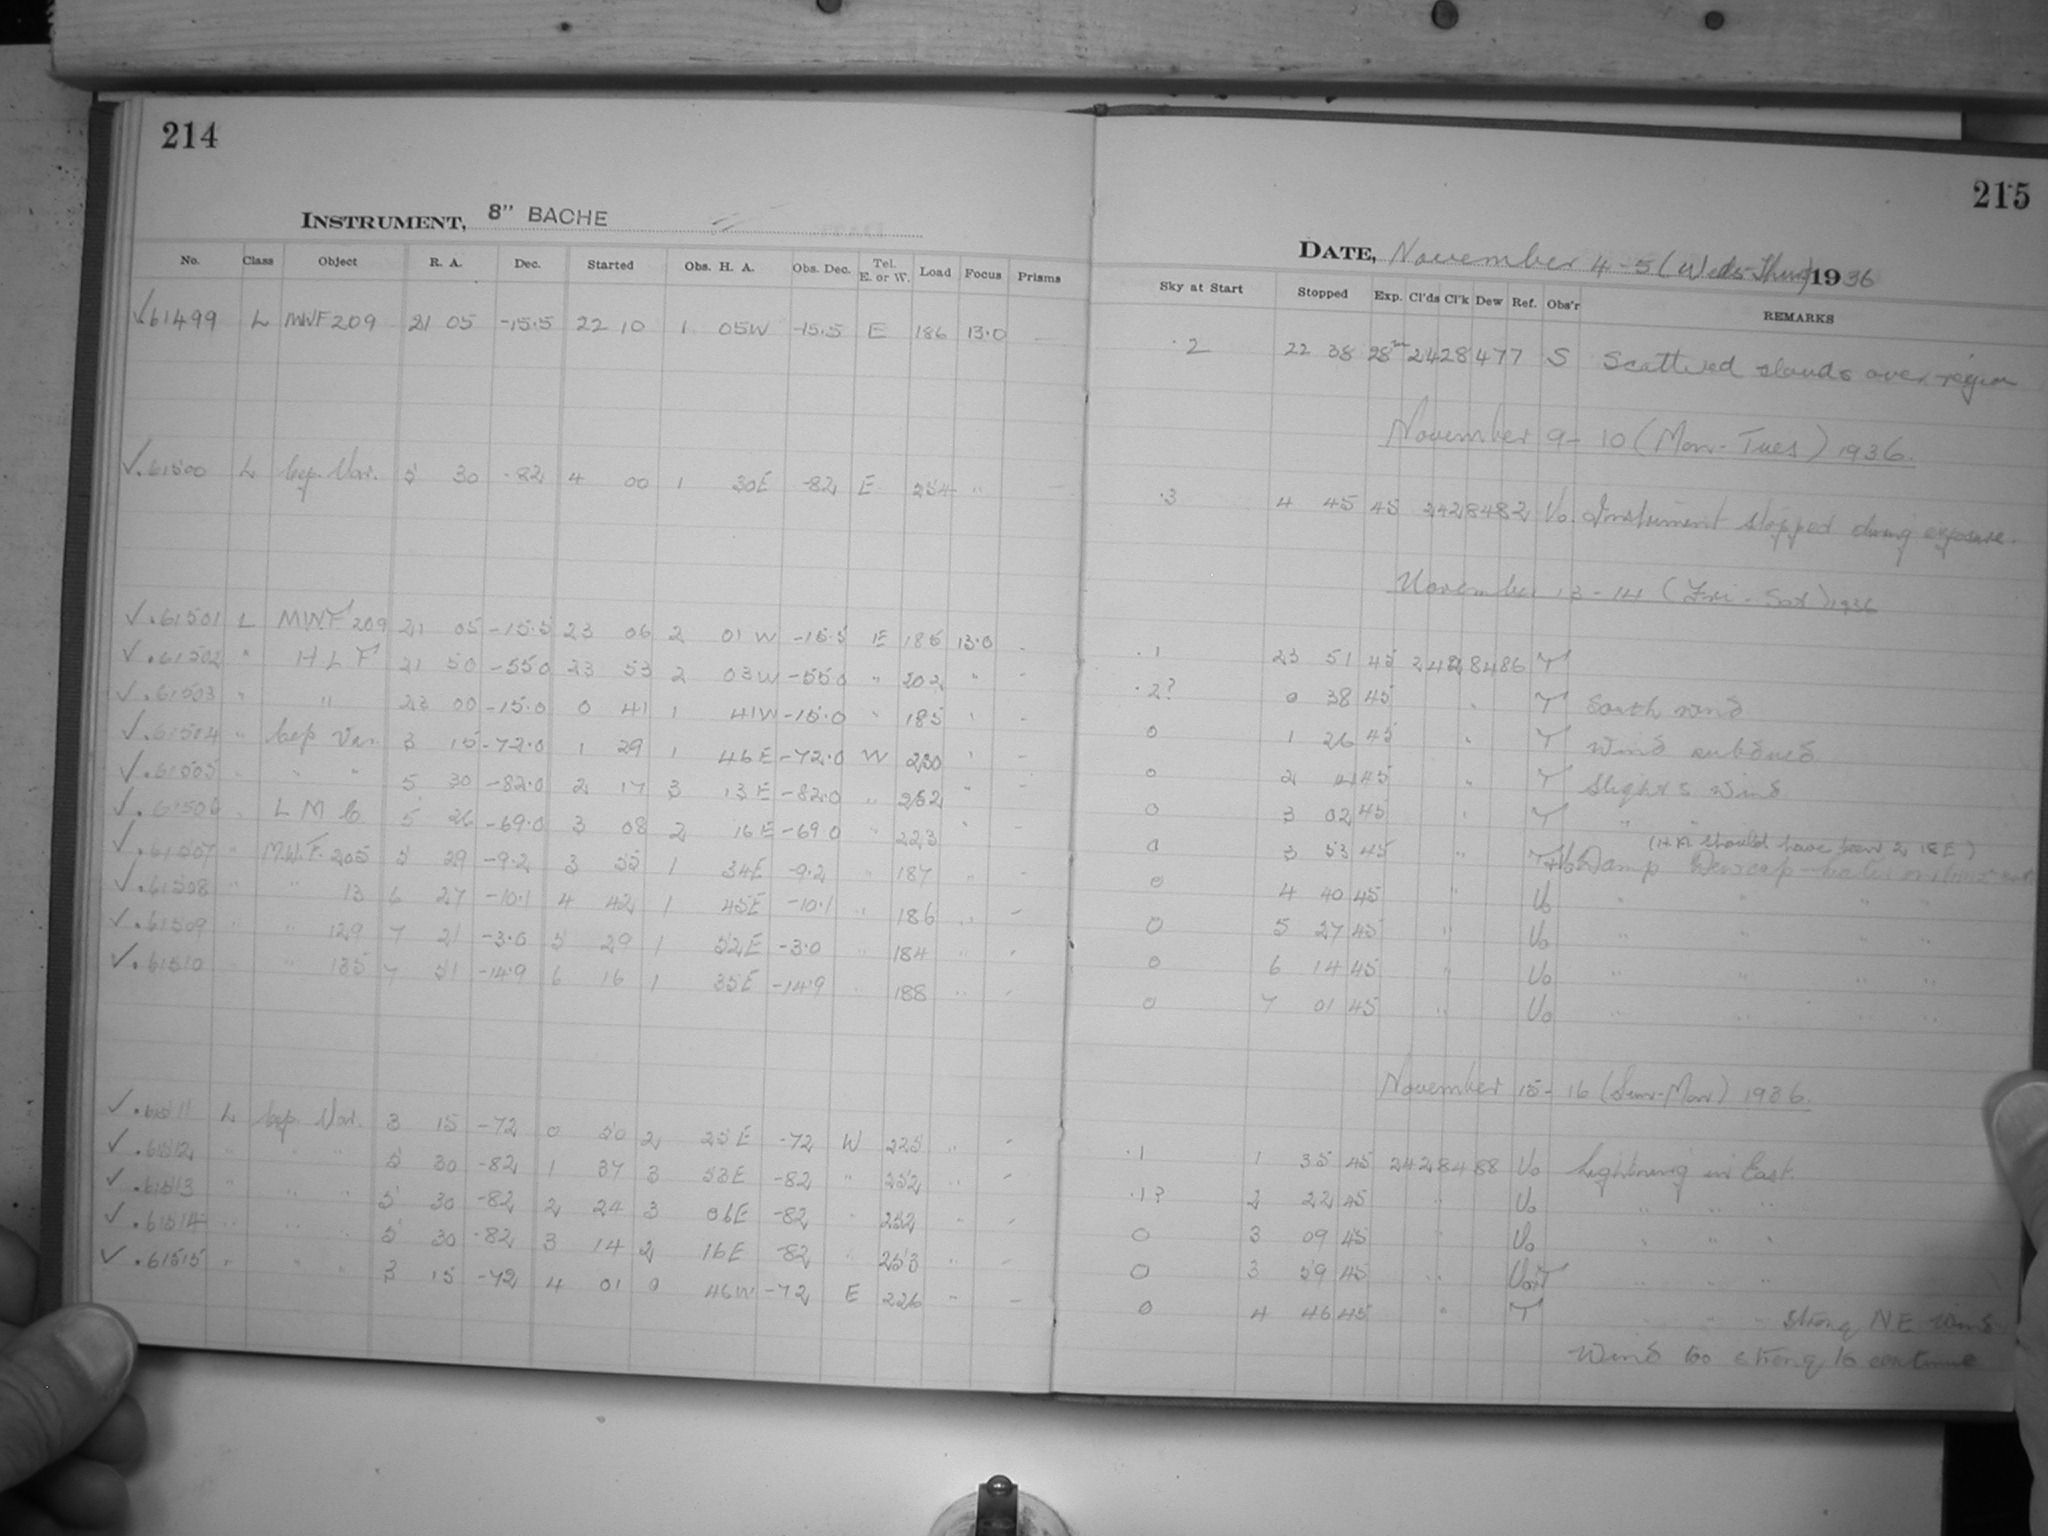 214
INSTRUMENT, 8" BACHE
No. Class Object R. A. Dec. Started Obs. H. A. Obs. Dec. Tel. E. or W. Load Focus Prisms
✓61499 L MWF 209 21 05 -15.5 22 10 1 05W -15.5 E 186 13.0 -
✓.61500 L Cep. Var. 5 30 -82 4 00 1 30E -82 E 254 " -
✓.61501 L MWF 209 21 05 -15.5 23 06 2 01W -15.5 E 185 13.0 -
✓.61502 " H L F 21 50 -55.0 23 53 2 03W -55.0 " 202 " -
✓.61503 " " 23 00 -15.0 0 41 1 41W -15.0 " 185 " -
✓.61504 " Cep Var. 3 15 -72.0 1 29 1 46E -72.0 W 230 " -
✓.61505 " " " 5 30 -82.0 2 17 3 13E -82.0 " 252 " -
✓.61506 " L M C 5 26 -69.0 3 08 2 16E -69.0 " 223 " -
✓.61507 " M.W.F. 205 5 29 -9.2 3 55 1 34E -9.2 " 187 " -
✓.61508 " " 13 6 27 -10.1 4 42 1 45E -10.1 " 186 " -
✓.61509 " " 129 7 21 -3.0 5 29 1 52E -3.0 " 184 " -
✓.61510 " " 135 7 51 -14.9 6 16 1 35E -14.9 " 188 " -
✓.61511 L Cep. Var. 3 15 -72 0 50 2 25E -72 W 225 " -
✓.61512 " " " 5 30 -82 1 37 3 53E -82 " 252 " -
✓.61513 " " " 5 30 -82 2 24 3 06E -82 " 252 " -
✓.61514 " " " 5 30 -82 3 14 2 16E -82 " 253 " -
✓.61515 " " " 3 15 -72 4 01 0 46W -72 E 226 " -
215
DATE, November 4-5 (Weds-Thurs) 1936
Sky at Start Stopped Exp. Cl'ds Cl'k Dew Ref. Obs'r REMARKS
.2 22 38 28m 2428477 S Scattered clouds over region
November 9-10 (Mon-Tues) 1936.
.3 4 45 45 2428482 Vo. Instrument stopped during exposure.
November 13-14 (Fri-Sat) 1936
.1 23 51 45 2428486 T
.2? 0 38 45 " T South wind
0 1 26 45 " T Wind subdued
0 2 45 " T Slight S wind
0 3 02 45 " T " "
(H A should have been 2 18E)
0 3 53 45 " T+Vo Damp Dewcap
0 4 40 45 " Vo " " " "
0 5 27 45 " Vo " " " "
0 6 14 45 " Vo " " " "
0 7 01 45 " Vo " " " "
November 15-16 (Sun-Mon) 1936.
.1 1 35 45 2428488 Vo Lightning in East.
.1? 2 22 45 " Vo " " "
0 3 09 45 " Vo " " "
0 3 59 45 " Vo+T " " "
0 4 46 45 " T " " " Strong N E Wind
Wind too strong to continue